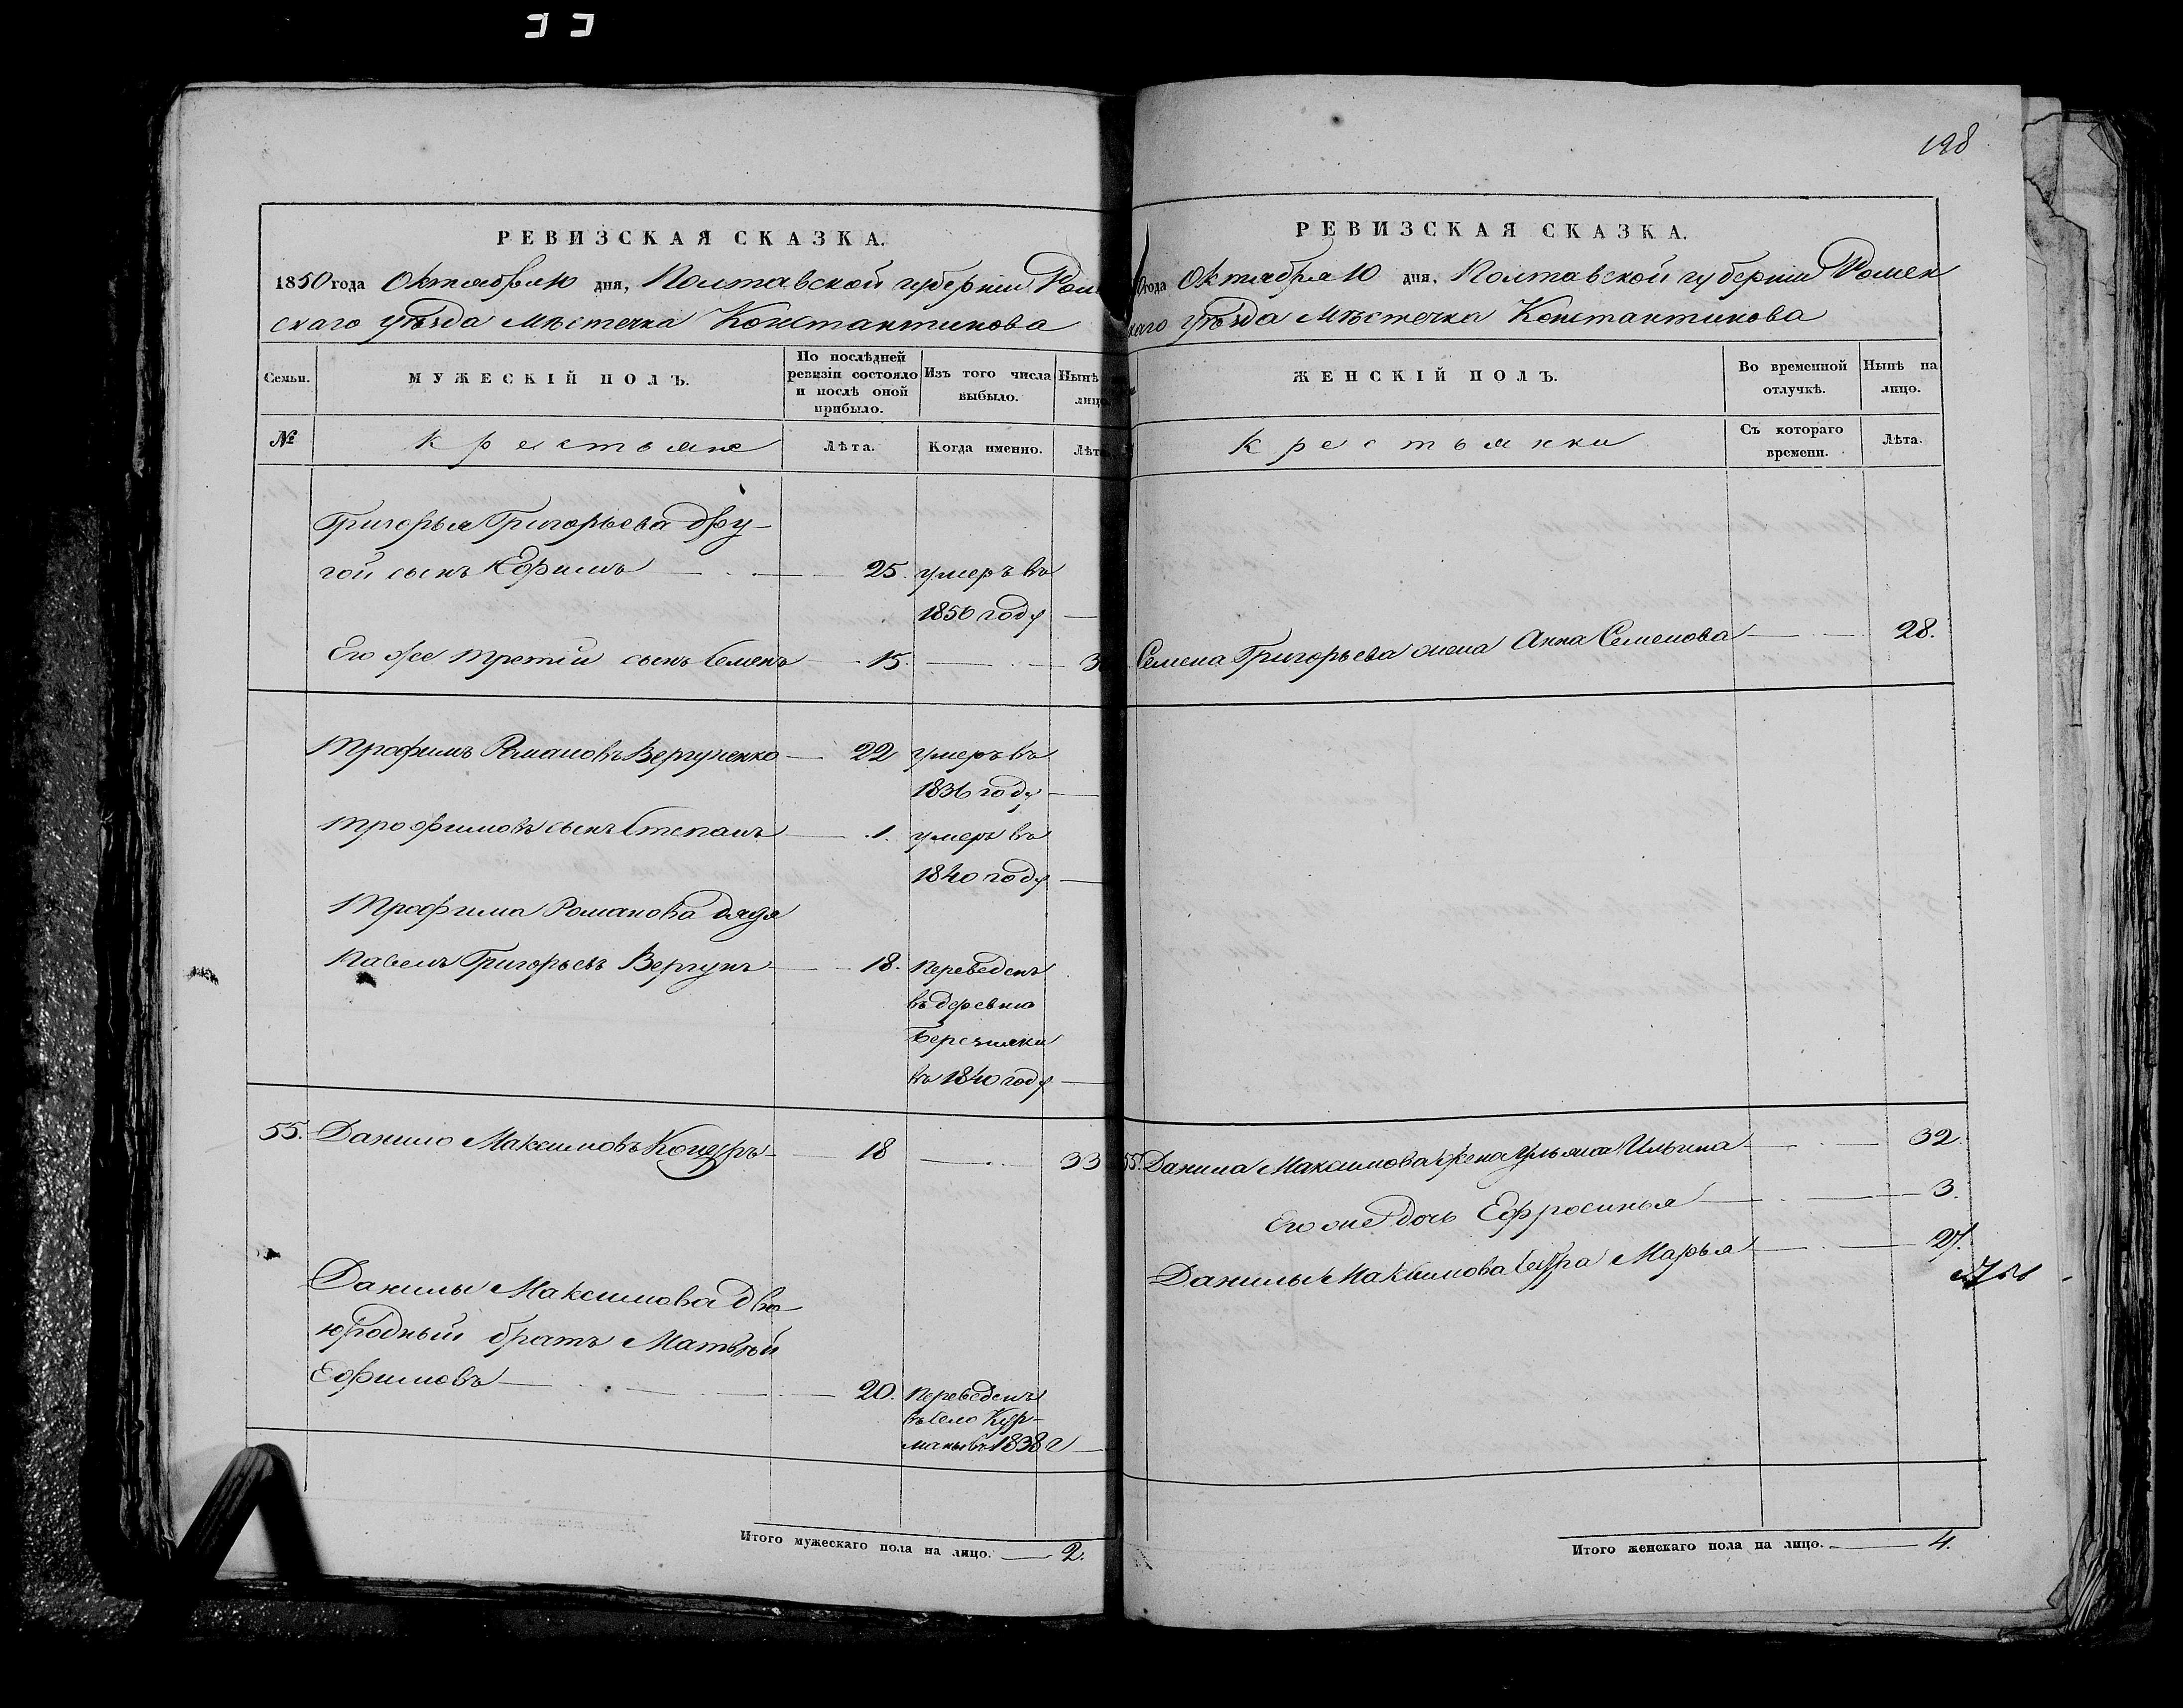 198
РЕВИЗСКАЯ СКАЗКА.
1850 года Октября 10 дня, Полтавской губерніи Ром
скаго уѣзда Мѣстечка Константинова
Семьи.
МУЖЕСКІЙ ПОЛЪ.
По послѣдней ревизіи состояло и послѣ оной прибыло.
Изъ того числа выбыло.
Нынѣ лицо
№
Крестьяне
Лѣта.
Когда именно.
Лѣт
Григорья Григорьева дру-
гой сынъ Ефимъ — 25. умеръ въ
1850 году —
Его же третій сынъ Семенъ — 15. — 3
Трофимъ Романовъ Вергуненко — 22 умеръ въ
1836 году —
Трофимовъ сынъ Степанъ — 1. умеръ въ
1840 году —
Трофима Романова дядя
Павелъ Григорьевъ Вергунъ — 18. Переведенъ
въ деревню
Березняки
въ 1840 году —
55. Данило Максимовъ Коцуръ — 18 — 33
Данилы Максимова дво-
юродный братъ Матвѣй
Ефимовъ — 20. Переведенъ
въ село Кур-
маны въ 1838 г —
Итого мужескаго пола на лицо. — 2.
РЕВИЗСКАЯ СКАЗКА.
0 года Октября 10 дня, Полтавской губерніи Ромен
скаго уѣзда Мѣстечка Константинова
ЖЕНСКІЙ ПОЛЪ.
Во временной отлучкѣ.
Нынѣ на лицо.
Крестьянки
Съ котораго времени.
Лѣта.
Семена Григорьева жена Анна Семенова — 28.
55. Данила Максимова жена Ульяна Ильина — 32.
Его же дочь Ефросинья — 3.
Данилы Максимова сестра Марья — 27.
Итого женскаго пола на лицо. — 4.